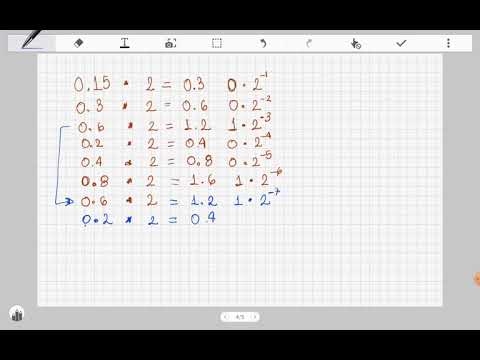 T
0.15 * 2 = 0.3 0 · 2⁻¹
0.3 * 2 = 0.6 0 · 2⁻²
0.6 * 2 = 1.2 1 · 2⁻³
0.2 * 2 = 0.4 0 · 2⁻⁴
0.4 * 2 = 0.8 0 · 2⁻⁵
0.8 * 2 = 1.6 1 · 2⁻⁶
0.6 * 2 = 1.2 1 · 2⁻⁷
0.2 * 2 = 0.4
4/5